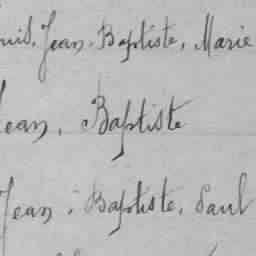 Jean, Baptiste, Marie
Jean, Baptiste
Jean, Baptiste, Paul